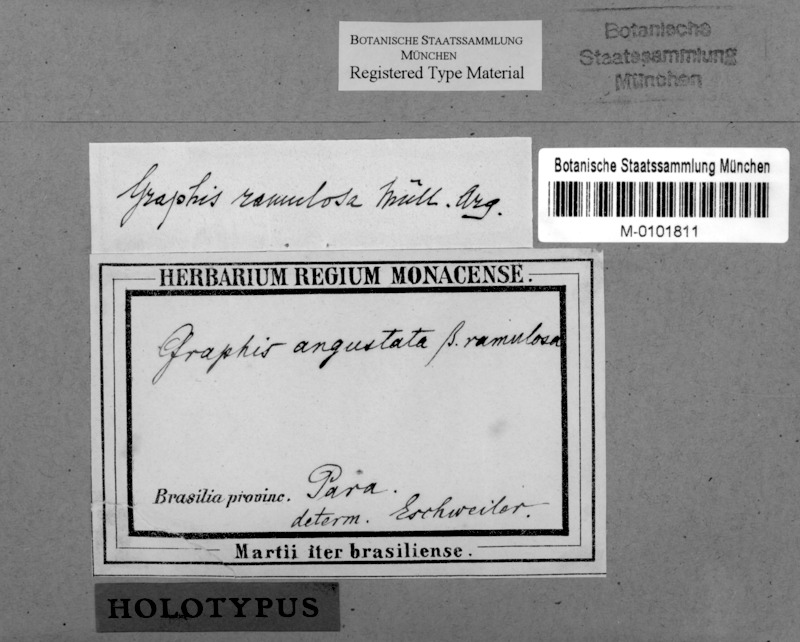 BOTANISCHE STAATSSAMMLUNG
MÜNCHEN
Registered Type Material
Botanische
Staatssammlung
München
Graphis ramulosa Müll. Arg.
Botanische Staatssammlung München
M-0101811
HERBARIUM REGIUM MONACENSE.
Graphis angustata β. ramulosa
Brasilia provinc. Para.
determ. Eschweiler.
Martii iter brasiliense.
HOLOTYPUS